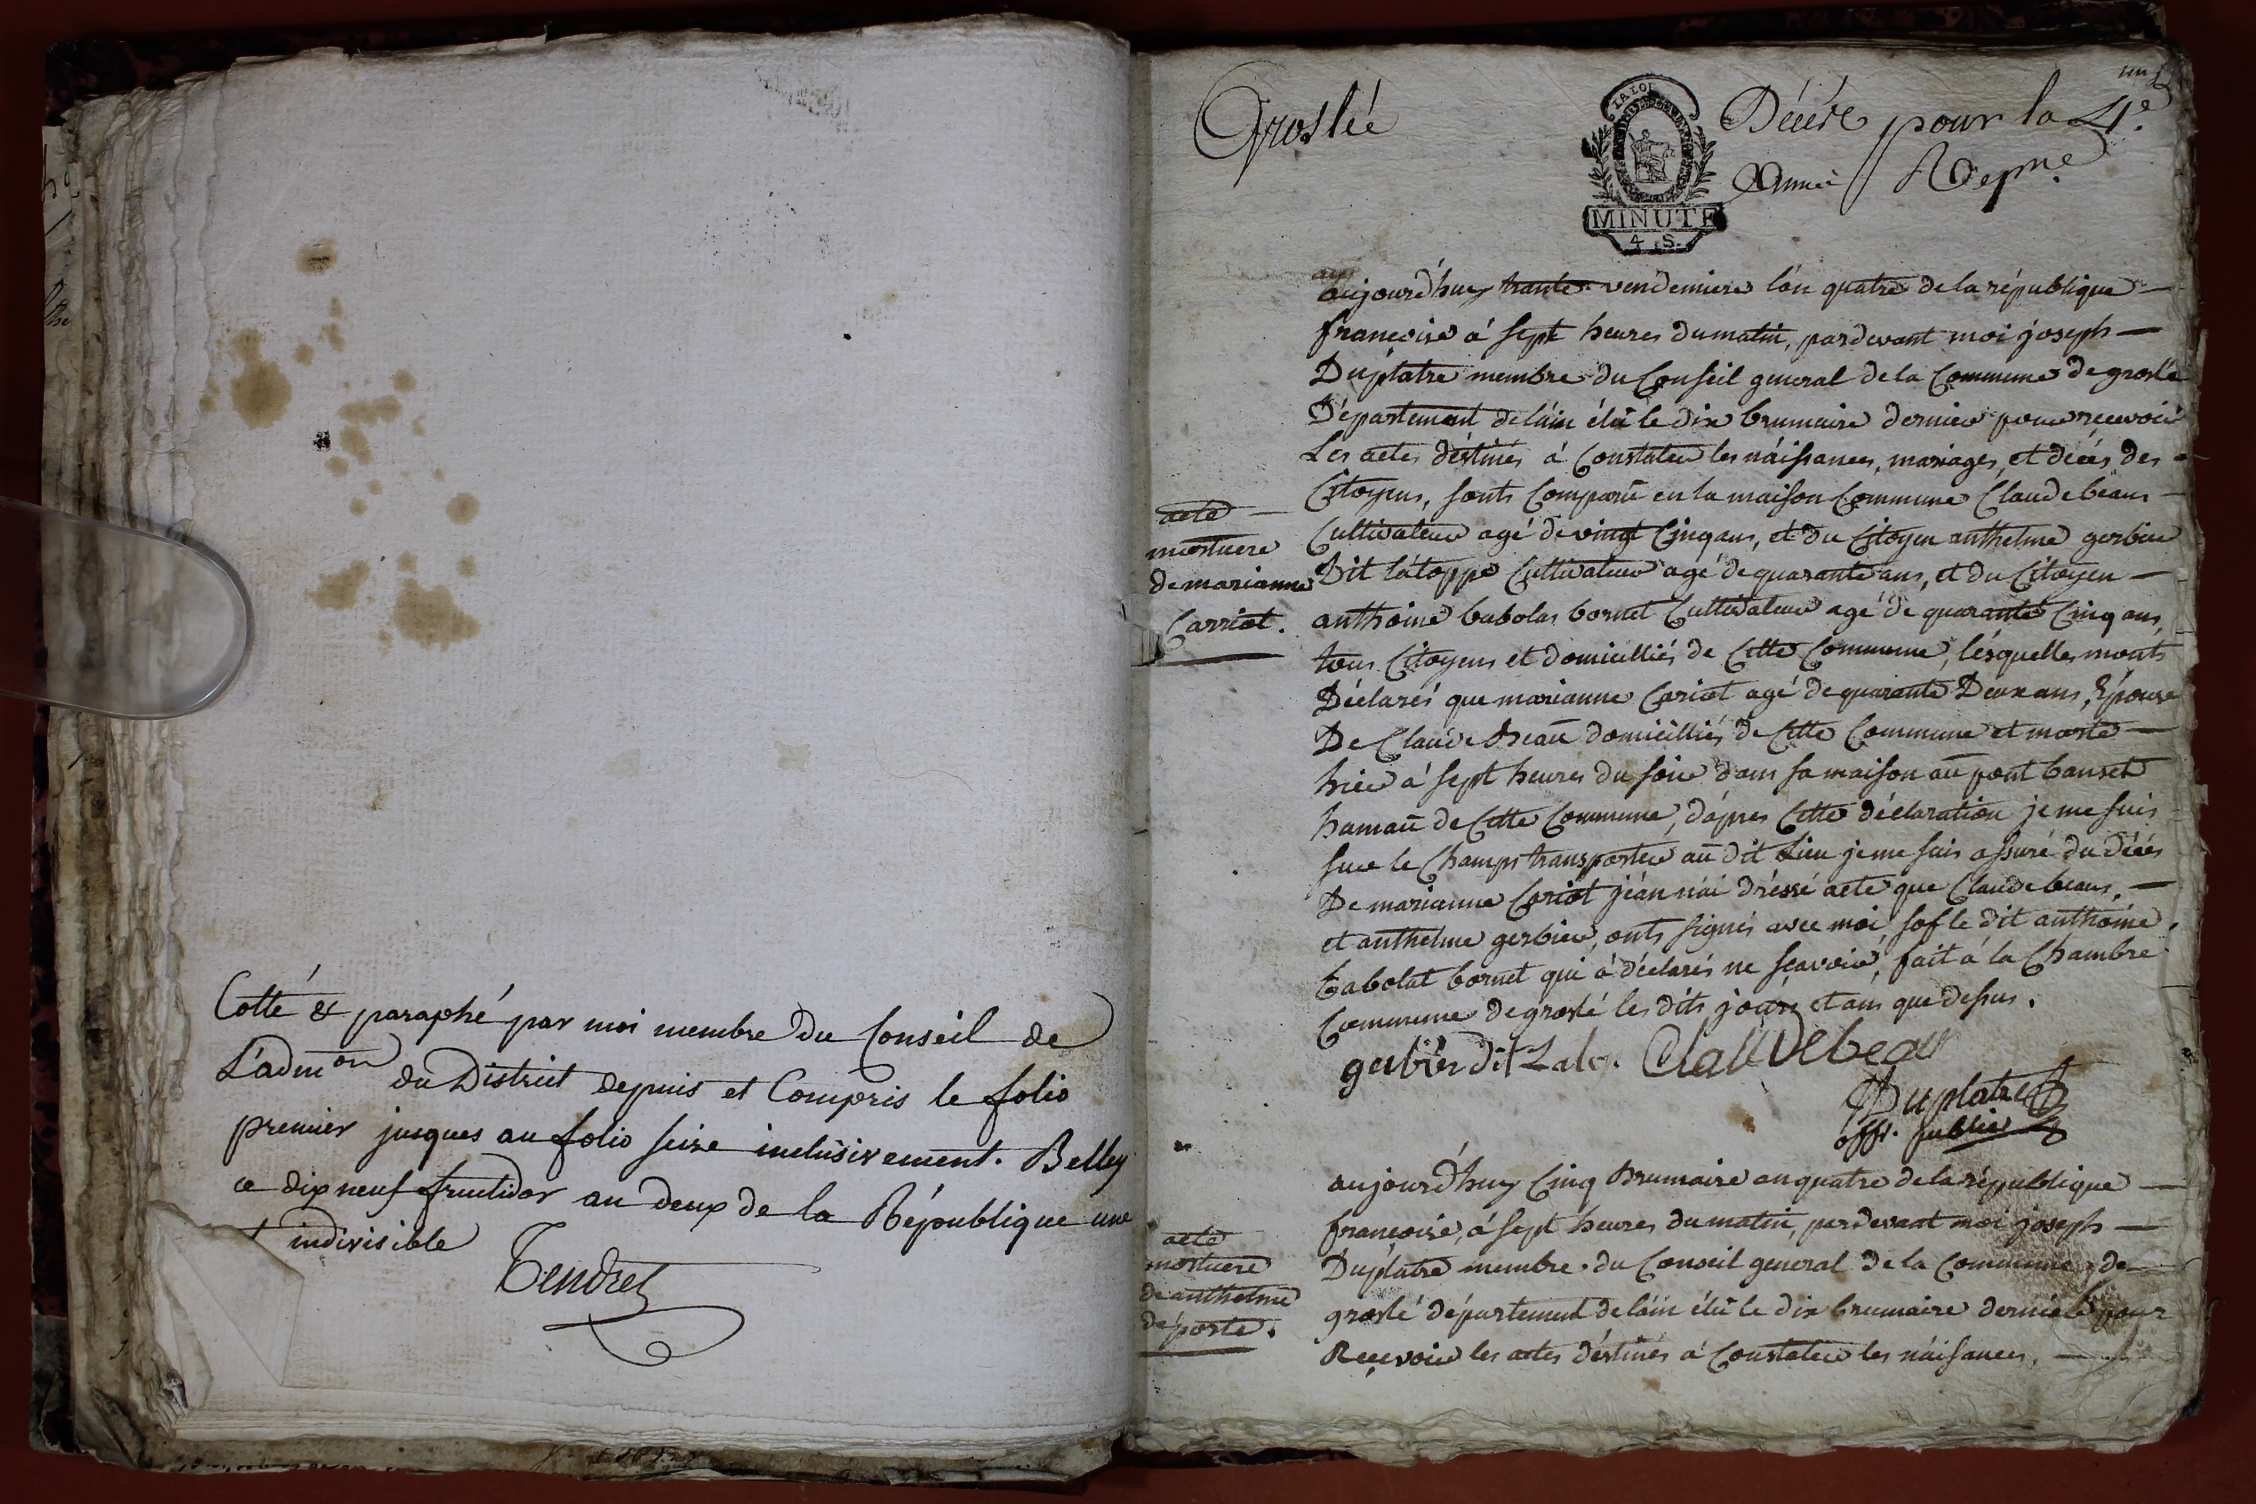 Cotté & paraphé par moi membre du Conseil de
L'admon du District depuis et Compris le folio
premier jusques au folio seize inclusivement. Belley
ce dix neuf fructidor an deux de la République une
indivisible
Tendret
Groslée
LA LOI
MINUTE
4 S.
Décès pour la 4e
Année Repne
aujourd'huy trante vendemiere l'an quatre de la république
francoise à sept heures du matin, pardevant moi joseph
Duplatre membre du Conseil general de la Commune de groslé
Département de láin élû le dix brumaire dernier pour recevoir
Les actes déstinés à Constater les náissances, mariages, et décés des
Citoyens, sonts Comparû en la maison Commune Claude béaus
Cultivateur agé de vingt Cinq ans, et du Citoyen anthelme gerbier
Dit látoppe Cultivateur agé de quarante ans, et du Citoyen
acte
mortuere
de marianne
Carriot.
anthoine babolas bornet Cultivateur agé de quarante Cinq ans,
tous Citoyens et domicilliés de Cette Commune, lésquelles monts
Déclarés que marianne Coriot agé de quarante Deux ans, Epouse
De Claude Beaū domicilliés de Cette Commune et morte
hier à sept heures du soir dans sa maison aū pont banset
hamaū de Cette Commune, dápres Cette déclaration je me suis
sur le Champs transporter aū dit Lieu je me suis assuré du décés
De marianne Coriot jéan nái dréssé acte que Claude beaus,
et anthelme gerbier, onts signés avec moi sof le dit anthoine
babolat bornet qui à déclarés ne scavoir, fait á la Chambre
Commune de groslé les dits jours et ans que dessus.
gerbier dit Lato. Claudebeau
Duplatre
offr. public
acte
mortuere
de anthelme
déporte.
aujourd'huy Cinq Brumaire an quatre de la république
francoise, à sept heures du matin, pardevant moi joseph
Duplatre membre du Conseil general de la Commune de
groslé département de láin élû le dix brumaire dernier pour
Recevoir les actes déstinés à Constater les náisances,